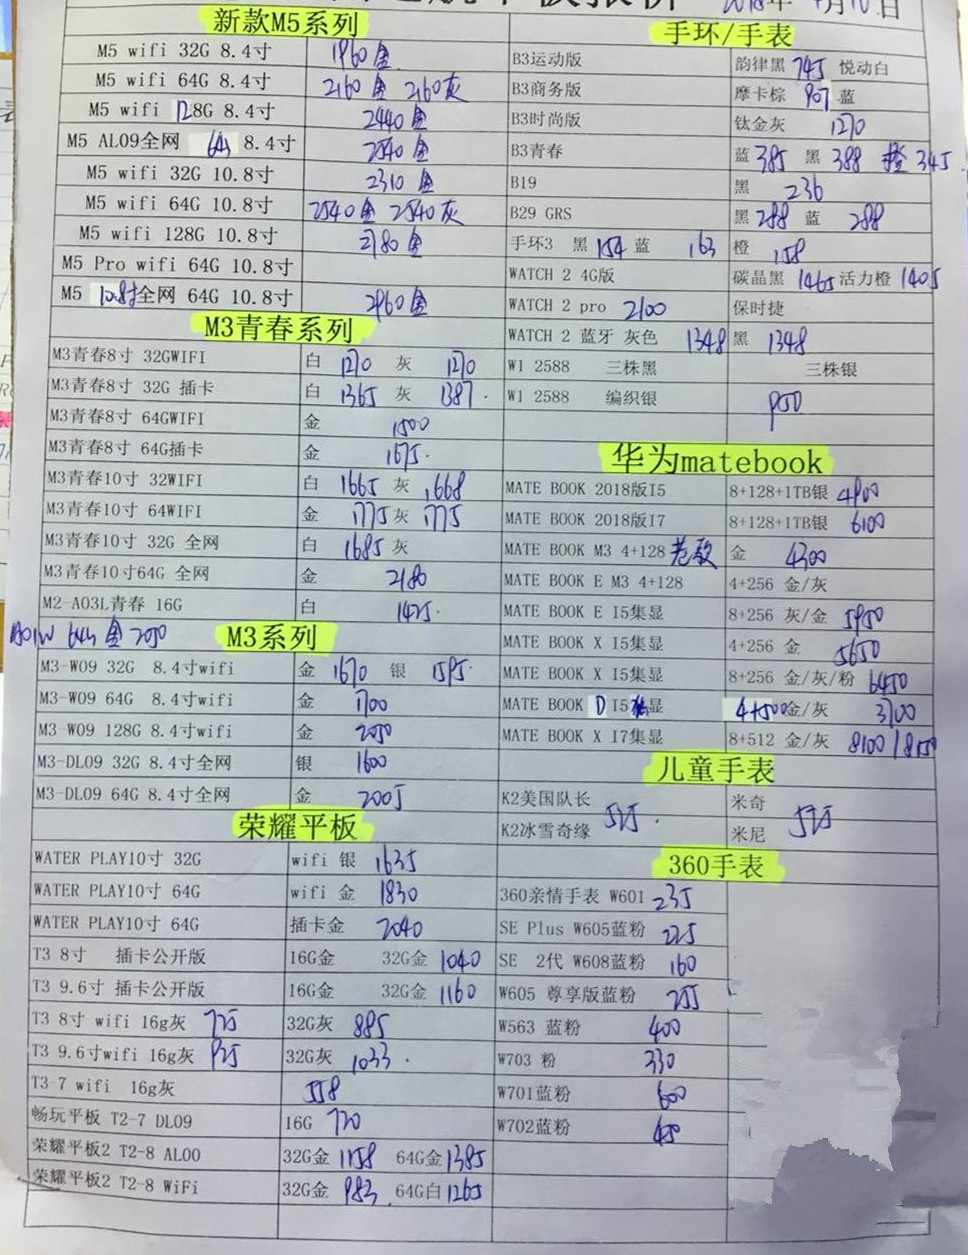 新款M5系列
M5 wifi 32G 8.4寸 1960金
M5 wifi 64G 8.4寸 2160金 2160灰
M5 wifi 128G 8.4寸 2440金
M5 AL09全网 64G 8.4寸 2540金
M5 wifi 32G 10.8寸 2310金
M5 wifi 64G 10.8寸 2540金 2540灰
M5 wifi 128G 10.8寸 2780金
M5 Pro wifi 64G 10.8寸
M5 10.8寸全网 64G 10.8寸 2960金
M3青春系列
M3青春8寸 32GWIFI 白 1270 灰 1270
M3青春8寸 32G 插卡 白 1365 灰 1387
M3青春8寸 64GWIFI 金 1500
M3青春8寸 64G插卡 金 1675
M3青春10寸 32WIFI 白 1665 灰 1668
M3青春10寸 64WIFI 金 1775 灰 1775
M3青春10寸 32G 全网 白 1685 灰
M3青春10寸64G 全网 金 2180
M2-A03L青春 16G 白 1425
A01W 64G 金 2050
M3系列
M3-W09 32G 8.4寸wifi 金 1670 银 1595
M3-W09 64G 8.4寸wifi 金 1700
M3-W09 128G 8.4寸wifi 金 2050
M3-DL09 32G 8.4寸全网 银 1600
M3-DL09 64G 8.4寸全网 金 2005
荣耀平板
WATER PLAY10寸 32G wifi 银 1635
WATER PLAY10寸 64G wifi 金 1830
WATER PLAY10寸 64G 插卡金 2040
T3 8寸 插卡公开版 16G金 32G金 1040
T3 9.6寸 插卡公开版 16G金 32G金 1160
T3 8寸 wifi 16g灰 725 32G灰 885
T3 9.6寸wifi 16g灰 925 32G灰 1033
T3-7 wifi 16g灰 558
畅玩平板 T2-7 DL09 16G 720
荣耀平板2 T2-8 AL00 32G金 1158 64G金 1385
荣耀平板2 T2-8 WiFi 32G金 983 64G白 1265
手环/手表
B3运动版 韵律黑 745 悦动白
B3商务版 摩卡棕 907 蓝
B3时尚版 钛金灰 1270
B3青春 蓝 385 黑 388 橙 345
B19 黑 236
B29 GRS 黑 288 蓝 288
手环3 黑 154 蓝 163 橙 158
WATCH 2 4G版 碳晶黑 1465 活力橙 1405
WATCH 2 pro 2100 保时捷
WATCH 2 蓝牙 灰色 1348 黑 1348
W1 2588 三株黑 三株银
W1 2588 编织银 950
华为matebook
MATE BOOK 2018版I5 8+128+1TB银 4900
MATE BOOK 2018版I7 8+128+1TB银 6100
MATE BOOK M3 4+128 金 4300
MATE BOOK E M3 4+128 4+256 金/灰
MATE BOOK E I5集显 8+256 灰/金 5950
MATE BOOK X I5集显 4+256 金 5650
MATE BOOK X I5集显 8+256 金/灰/粉 6450
MATE BOOK D I5独显 4+500金/灰 3700
MATE BOOK X I7集显 8+512 金/灰 8100/8150
儿童手表
K2美国队长 米奇
525 525
K2冰雪奇缘 米尼
360手表
360亲情手表 W601 235
SE Plus W605蓝粉 225
SE 2代 W608蓝粉 160
W605 尊享版蓝粉 255
W563 蓝粉 400
W703 粉 330
W701蓝粉 600
W702蓝粉